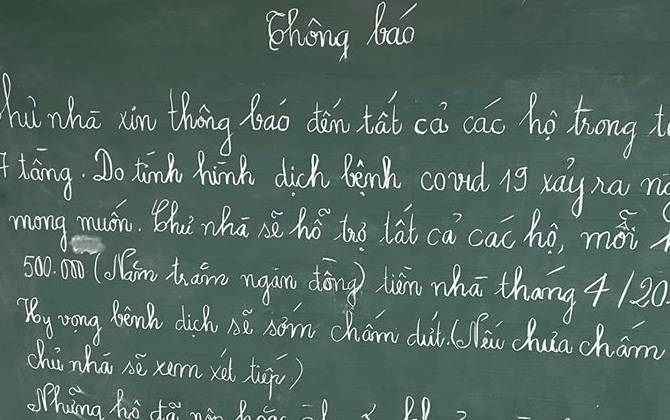 Thông báo
hủ nhà xin thông báo đến tất cả các hộ trong t
7 tầng. Do tình hình dịch bệnh covid 19 xảy ra n
mong muốn. Chủ nhà sẽ hỗ trợ tất cả các hộ, mỗi
500.000 (Năm trăm ngàn đồng) tiền nhà tháng 4/20
Hy vọng bệnh dịch sẽ sớm chấm dứt. (Nếu chưa chấm
chủ nhà sẽ xem xét tiếp)
Những hộ đã